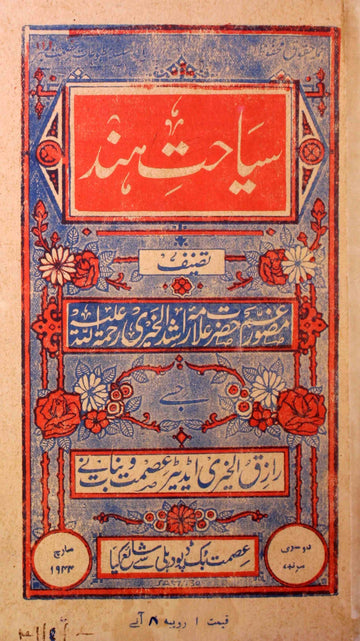 سیاحتِ ہند
تصنیف
مصورِ غم حضرت علامہ راشد الخیری رحمۃ اللہ علیہ
جسے
رازق الخیری ایڈیٹر عصمت و بنات نے
دوسری مرتبہ
مارچ ۱۹۴۴
عصمت بک ڈپو دہلی سے شائع کیا
قیمت ۱ روپیہ ۸ آنے